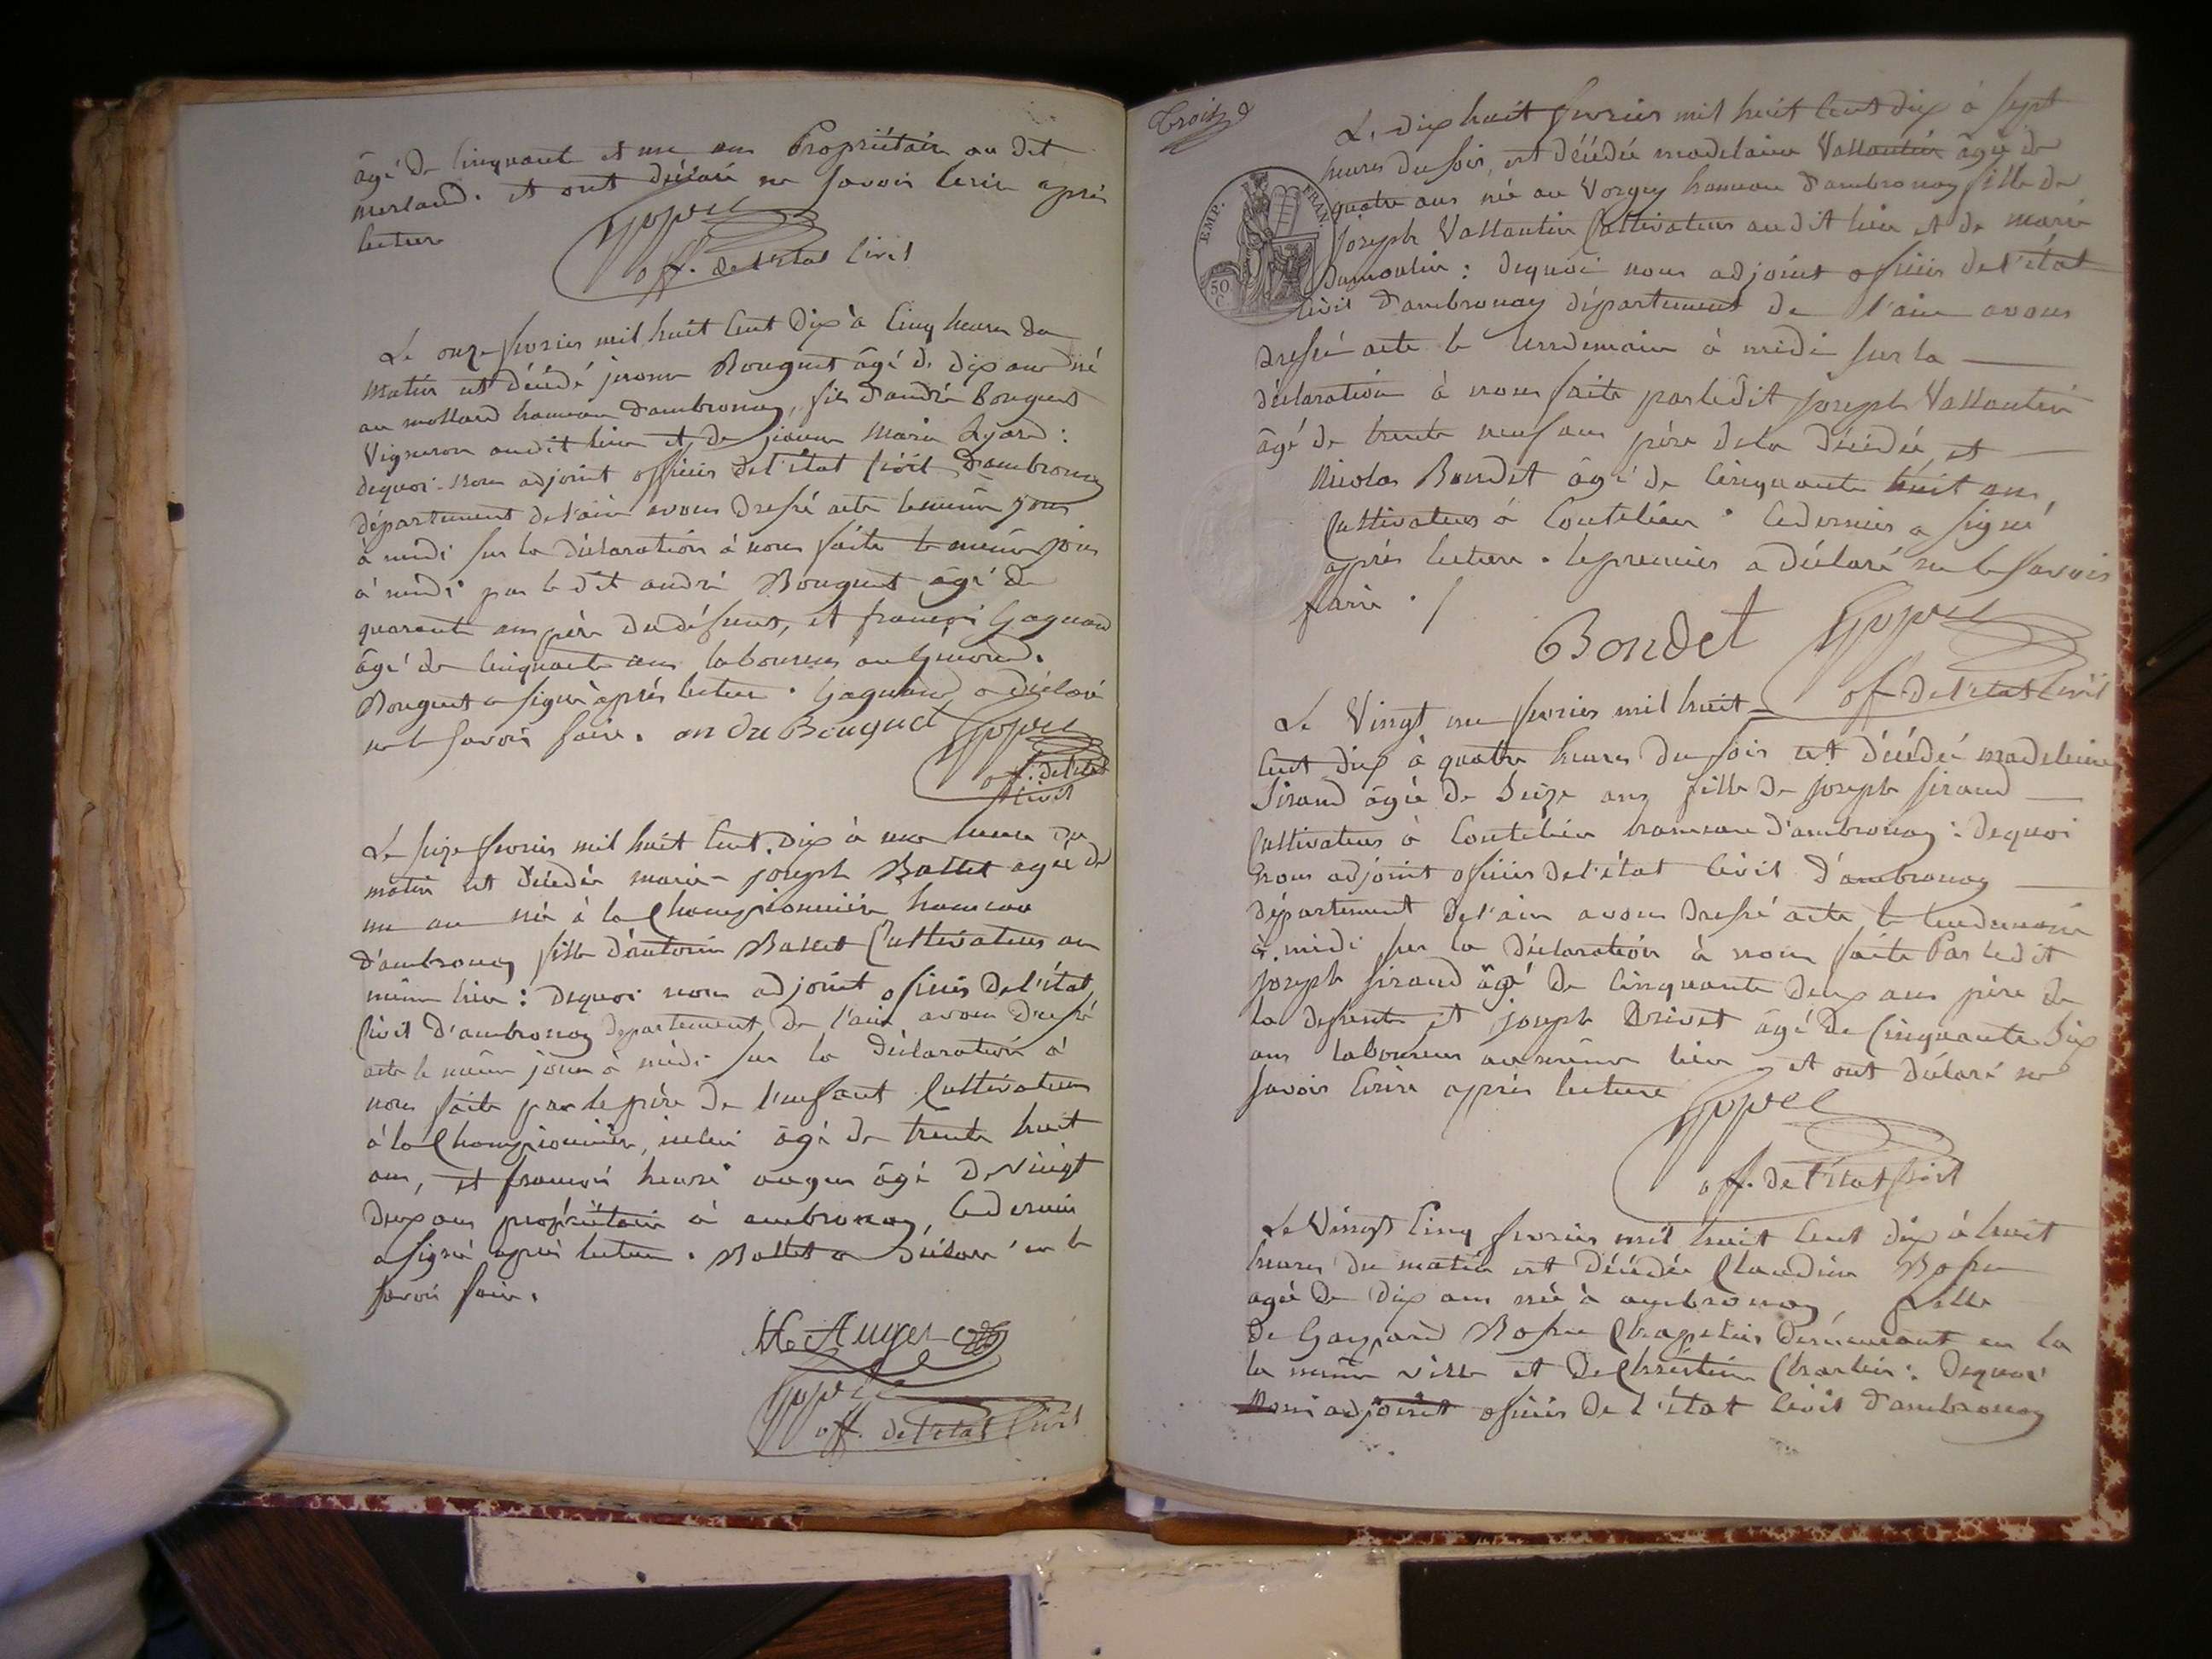 âgé de cinquante et un ans Propriétaire au dit
merland. et ont déclaré ne savoir écrire après
lecture
off. de l'état civil
Le onze fevrier mil huit cent dix à cinq heures du
matin est décédé jerome Bouguet âgé de dix ans né
au mollard hameau d'ambronay, fils d'andré Bouguet
Vigneron audit lieu et de jeanne Marie :
dequoi nous adjoint officier de l'état civil d'ambronay
département de l'ain avons dressé acte le même jour
à midi sur la déclaration à nous faite le même jour
à midi par le dit andré Bouguet âgé de
quarante ans père du défunt, et françois Gagnaud
âgé de cinquante ans laboureur au .
Bouguet a signé après lecture. Gagnaud a déclaré
ne le savoir faire. andre Bouguet
off. de l'état
civil
Le seize fevrier mil huit cent dix à une heure du
matin est décédée marie joseph Ballet agée de
un an née à la Championnière hameau
d'ambronay fille d'antoine Ballet Cultivateur au
même lieu : dequoi nous adjoint officier de l'état
Civil d'ambronay departement de l'ain avons dressé
acte le même jour à midi sur la déclaration à
nous faite par le père de l'enfant Cultivateur
à la Championnière, icelui âgé de trente huit
ans, et françois henri auger âgé de vingt
deux ans propriétaire à ambronay, ce dernier
a signé après lecture. Ballet a déclaré ne le
savoir faire.
He Auger
off. de l'etat Civil
Trois
Le dix huit fevrier mil huit cent dix à sept
heures du soir, est décédée madelaine Vallantin âgée de
EMP. FRAN.
50 C
quatre ans née au Vorgey hameau d'ambronay fille de
Joseph Vallantin Cultivateur audit lieu et de marie
Dumoulin : dequoi nous adjoint officier de l'état
civil d'ambronay département de l'ain avons
dressé acte le lendemain à midi sur la
déclaration à nous faite par ledit Joseph Vallantin
âgé de trente neuf ans père de la décédée, et
Nicolas Bondet âgé de cinquante huit ans,
Cultivateur à Coutelieu. Ce dernier a signé
après lecture. le premier a déclaré ne le savoir
faire ./
Bondet
off de l'etat Civil
Le Vingt un fevrier mil huit
cent dix à quatre heures du soir est décédée madeleine
Siraud âgée de Seize ans fille de Joseph Siraud
Cultivateur à Coutelieu hameau d'ambronay : dequoi
nous adjoint officier de l'état civil d'ambronay
département de l'ain avons dressé acte le lendemain
à midi sur la déclaration à nous faite Par ledit
Joseph Siraud âgé de cinquante deux ans père de
la defunte et joseph Brivet âgé de Cinquante Six
ans laboureur au même lieu et ont déclaré ne
savoir Ecrire après lecture
off. de l'Etat Civil
Le Vingt Cinq fevrier mil huit cent dix à huit
heures du matin est décédée Claudine
agée de dix ans née à ambronay, fille
de Gaspard Chapelier demeurant en la
la même ville et de Christine Charlin : dequoi
Nous adjoint officier de l'état civil d'ambronay